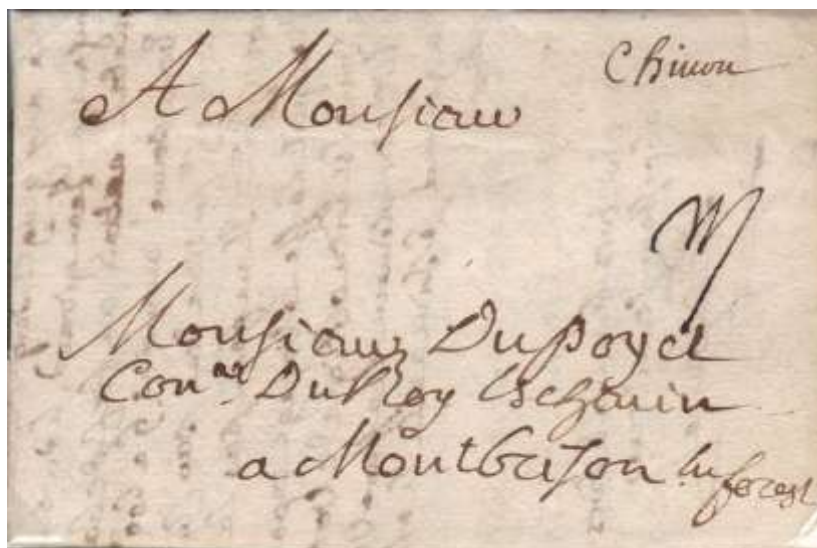 Chinon
A Monsieur
Monsieur Dupoyet
Con.er Du Roy Eschevin
a Montbrison en forest